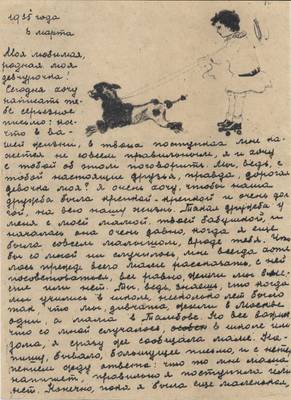 1935 года
8 марта
Моя любимая,
родная моя
девчурочка!
Сегодня хочу
написать те-
бе серьезное
письмо: кое-
что в ва-
шей жизни, в твоих поступках мне ка-
жется не совсем правильным, и я хочу
с тобой об этом поговорить. Мы, ведь, с
тобой настоящие друзья, правда, дорогая
девочка моя? Я очень хочу, чтобы наша
дружба была крепкой-крепкой и очень дол-
гой, на всю нашу жизнь. Такая дружба у
меня с моей мамой, твоей бабушкой, и
началась она очень давно, когда я еще
была совсем малышом, вроде тебя. Что
бы со мной ни случилось, мне всегда хоте-
лось прежде всего маме рассказать, с ней
посоветоваться, все равно, жили мы вме-
сте или нет. Ты, ведь, знаешь, что когда
мы учились в школе, несколько лет было
так, что мы, дивчата, жили в Москве
одни, а мама в Тамбове. Но все важное,
что со мной случалось, в школе или
дома, я сразу же сообщала маме. На-
пишу, бывало, большущее письмо, и с нетер-
пением жду ответа: что то мне мама
напишет, правильно я поступила или
нет. Конечно, пока я была еще маленькой,